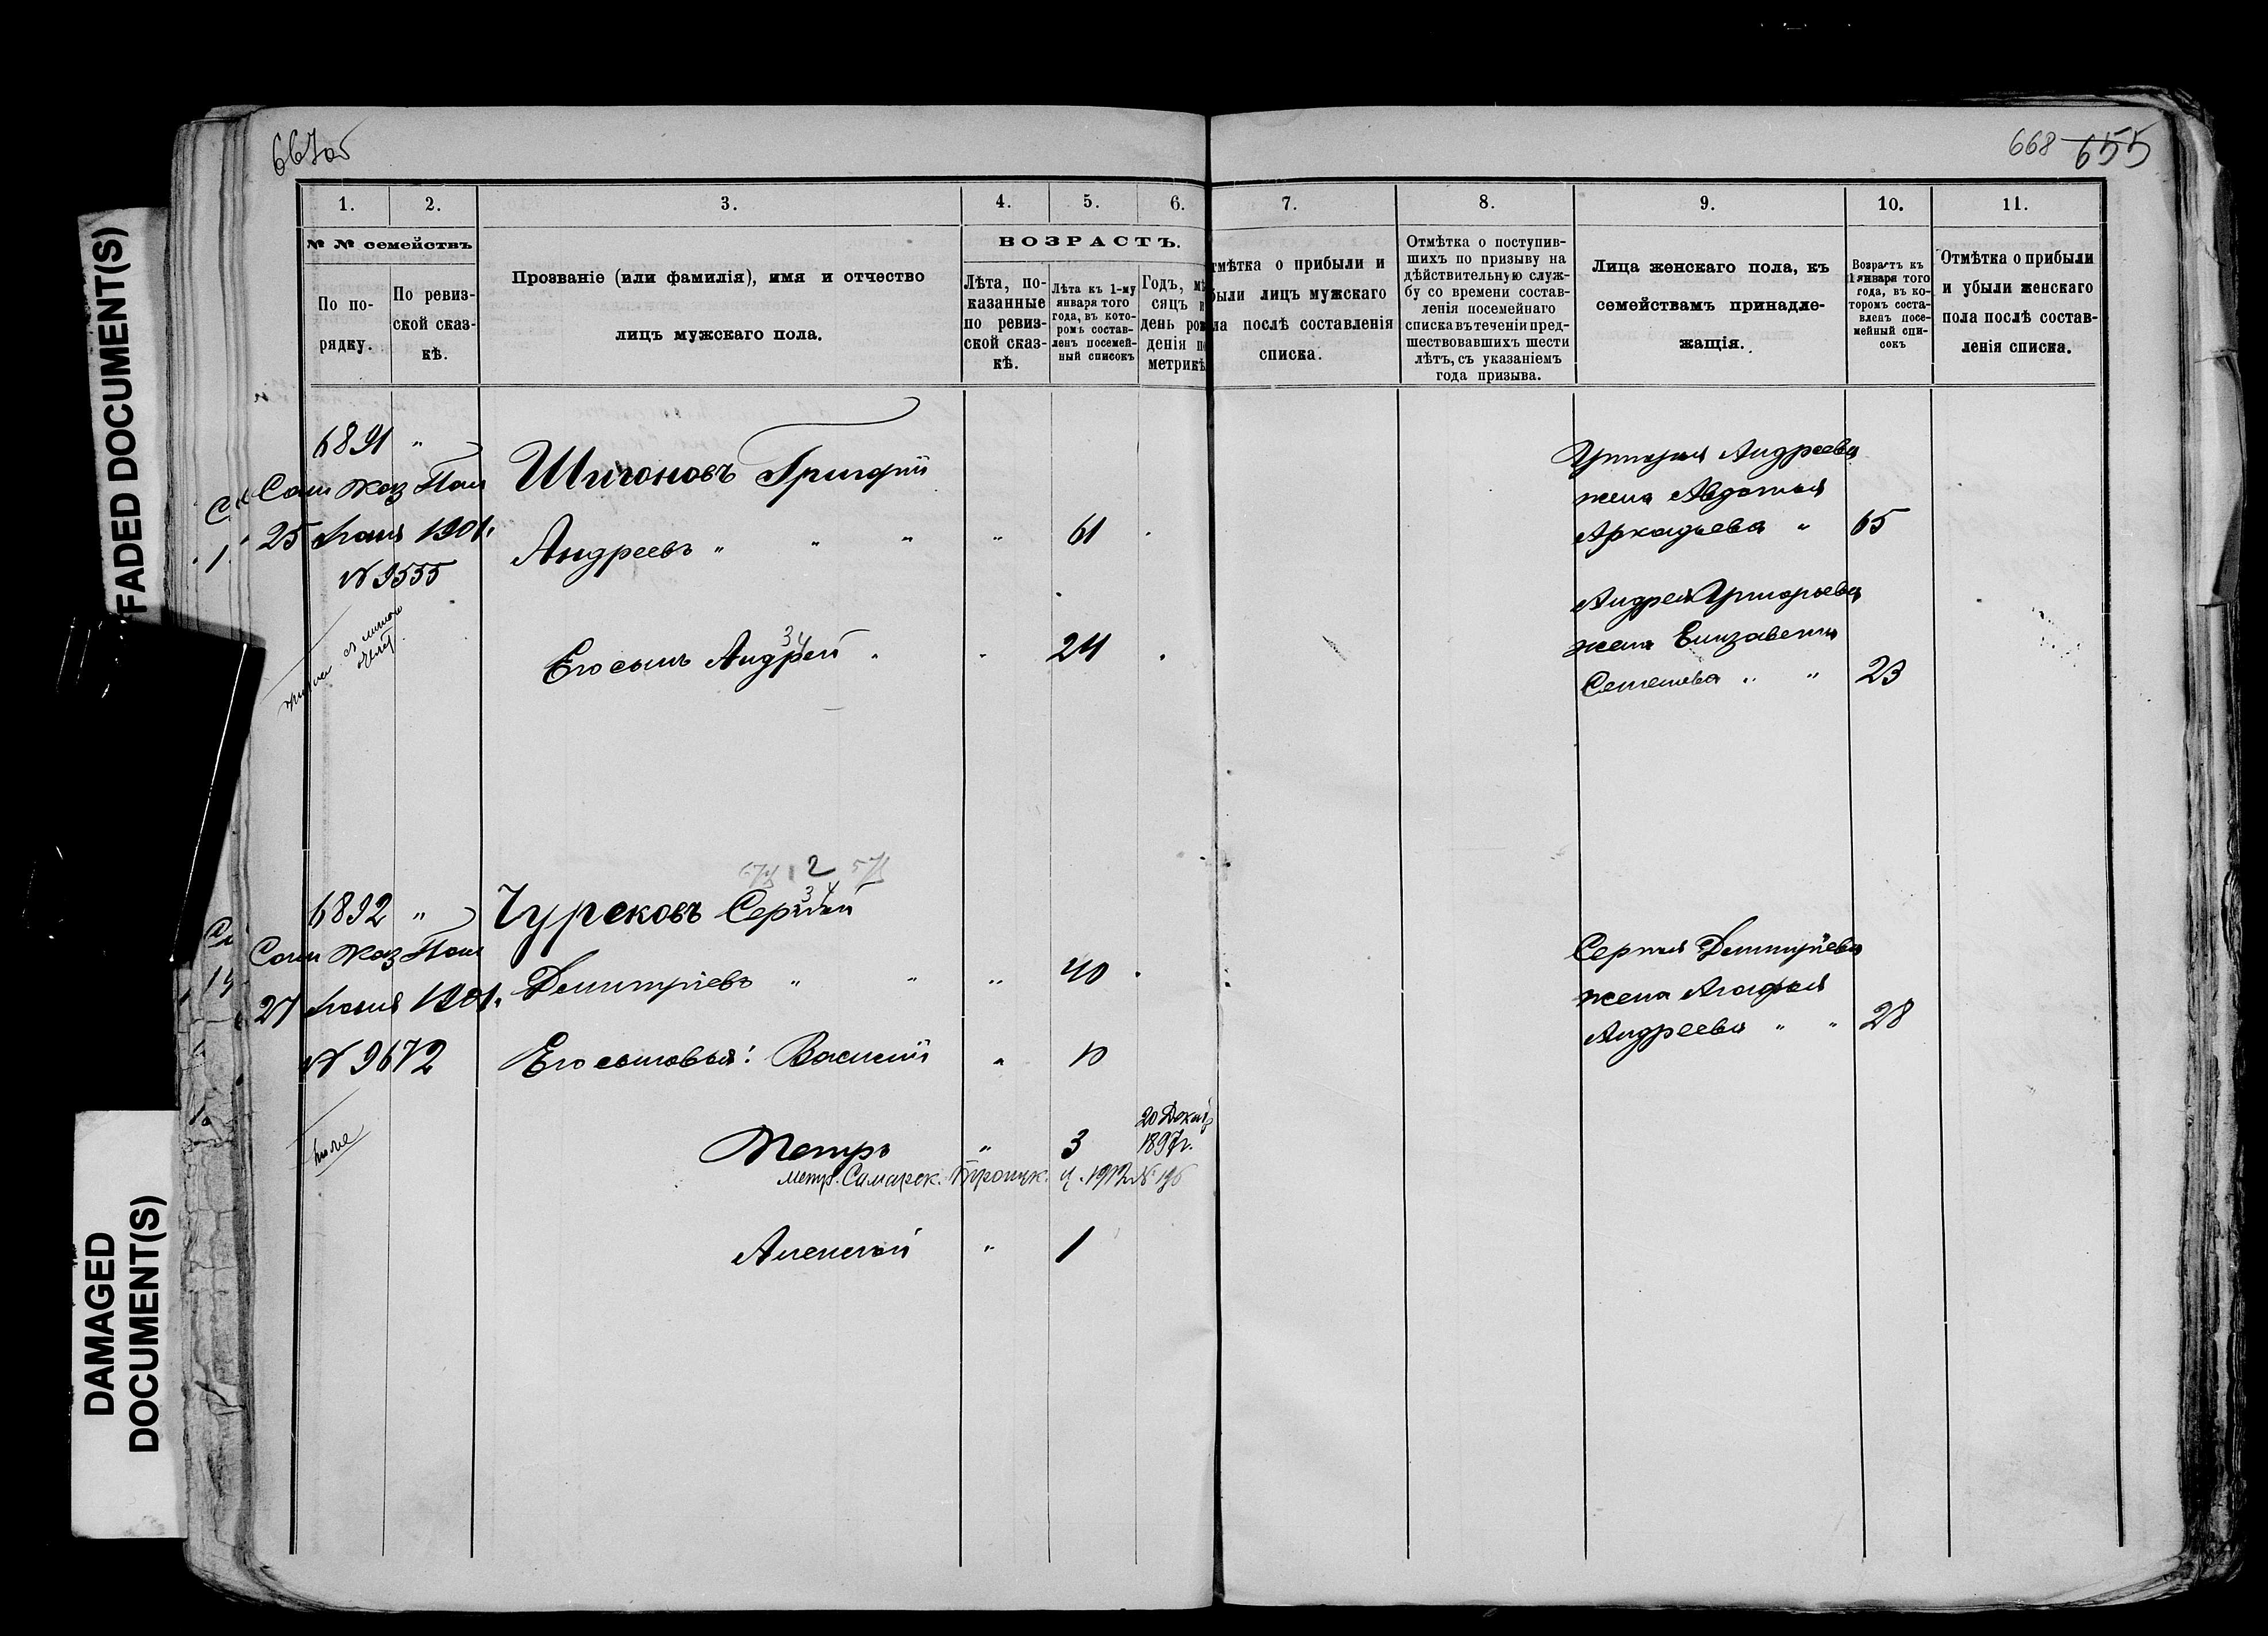 667об
668 655
FADED DOCUMENT(S)
DAMAGED
DOCUMENT(S)
1. 2. 3. 4. 5. 6. 7. 8. 9. 10. 11.
№ № семействъ
По по-
рядку.
По ревиз-
ской сказ-
кѣ.
Прозваніе (или фамилія), имя и отчество
лицъ мужскаго пола.
ВОЗРАСТЪ.
Лѣта, по-
казанные
по ревиз-
ской сказ-
кѣ.
Лѣта къ 1-му
января того
года, въ кото-
ромъ состав-
ленъ посемей-
ный списокъ
Годъ, мѣ
сяцъ и
день рож
денія по
метрикѣ
тмѣтка о прибыли и
были лицъ мужскаго
ла послѣ составленія
списка.
Отмѣтка о поступив-
шихъ по призыву на
дѣйствительную служ-
бу со времени состав-
ленія посемейнаго
списка въ теченіи пред-
шествовавшихъ шести
лѣтъ, съ указаніемъ
года призыва.
Лица женскаго пола, къ
семействамъ принадле-
жащія.
Возрастъ къ
1 января того
года, въ ко-
торомъ соста-
вленъ посе-
мейный спи-
сокъ
Отмѣтка о прибыли
и убыли женскаго
пола послѣ состав-
ленія списка.
6891 "
Сам Каз Пал
25 Іюня 1901.
№ 9555
Шигоновъ Григорій
Андреевъ " " " " 61
34
Его сынъ Андрей " " 24
Григорія Андреева
жена Авдотья
Аркадьева " 65
Андрея Григорьева
жена Елизавета
Семенова " " 23
2
6892 "
Сам Каз Пал
27 Іюня 1901.
№ 9672
34
Чурсковъ Сергѣй
Дмитріевъ " " " 40
Его сыновья: Василій " 10
20 Декаб
Петръ " 3 1897г.
метр. Самарск. Троицк. ц. 1912 №
Алексѣй " 1
Сергѣя Дмитріева
жена Агафья
Андреева " " 28